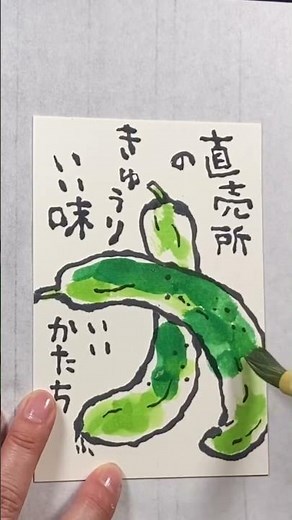 直売所
の
きゅうり
いい味
いい
かたち